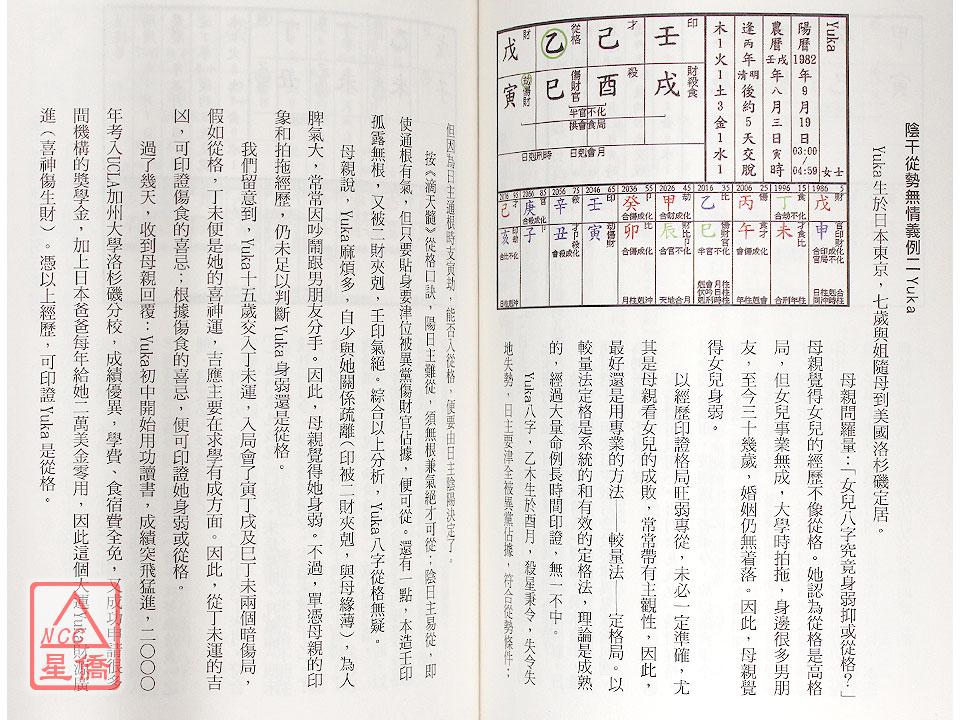 陰干從勢無情義例二 Yuka
Yuka
女士
陽曆 1982 年 9 月 19 日 03:00/04:59
農曆 壬戌 年 八 月 三 日 寅 時
逢丙年 清明 後約 5 天交脫
木1火1土3金1水1
印 才 從格 財
壬 己 乙 戊
戌 酉 巳 寅
財殺食 殺 傷財官 劫傷財
半官不化
拱會食局
日剋夙時
日剋會月
1986 5
1996 15
2006 25
2016 35
2026 45
2036 55
2046 65
2056 75
2066 85
戊 丁 丙 乙 甲 癸 壬 辛 庚 己
申 未 午 巳 辰 卯 寅 丑 子 亥
Yuka生於日本東京，七歲與姐隨母到美國洛杉磯定居。
母親問羅量：「女兒八字究竟身弱抑或從格？」
母親覺得女兒的經歷不像從格。她認為從格是高格
局，但女兒事業無成，大學時拍拖，身邊很多男朋
友，至今三十幾歲，婚姻仍無着落。因此，母親覺
得女兒身弱。
以經歷印證格局旺弱專從，未必一定準確，尤
其是母親看女兒的成敗，常常帶有主觀性，因此，
最好還是用專業的方法——較量法——定格局。以
較量法定格是系統的和有效的定格法，理論是成熟
的，經過大量命例長時間印證，無一不中。
Yuka八字，乙木生於酉月，殺星秉令，失令失
地失勢，日主要津全被異黨佔據，符合從勢條件；
但因為日主通根時支寅劫，能否入從格，便要由日主陰陽決定了。
按《滴天髓》從格口訣，陽日主難從，須無根兼氣絕才可從；陰日主易從，即
使通根有氣，但只要貼身要津位被異黨傷財官佔據，便可從。還有一點，本造壬印
孤露無根，又被二財夾剋，壬印氣絕。綜合以上分析，Yuka八字從格無疑。
母親說，Yuka麻煩多，自少與她關係疏離（印被二財夾剋，與母緣薄），為人
脾氣大，常常因吵鬧跟男朋友分手。因此，母親覺得她身弱。不過，單憑母親的印
象和拍拖經歷，仍未足以判斷Yuka身弱還是從格。
我們留意到，Yuka十五歲交入丁未運，入局會了寅丁戌及巳丁未兩個暗傷局，
假如從格，丁未便是她的喜神運，吉應主要在求學有成方面。因此，從丁未運的吉
凶，可印證傷食的喜忌；根據傷食的喜忌，便可印證她身弱或從格。
過了幾天，收到母親回覆：Yuka初中開始用功讀書，成績突飛猛進，二〇〇〇
年考入UCLA加州大學洛杉磯分校，成績優異，學費、食宿費全免，又成功申請很多
間機構的獎學金，加上日本爸爸每年給她二萬美金零用，因此這個大運Yuka財源廣
進（喜神傷生財）。憑以上經歷，可印證Yuka是從格。
NCC
星僑